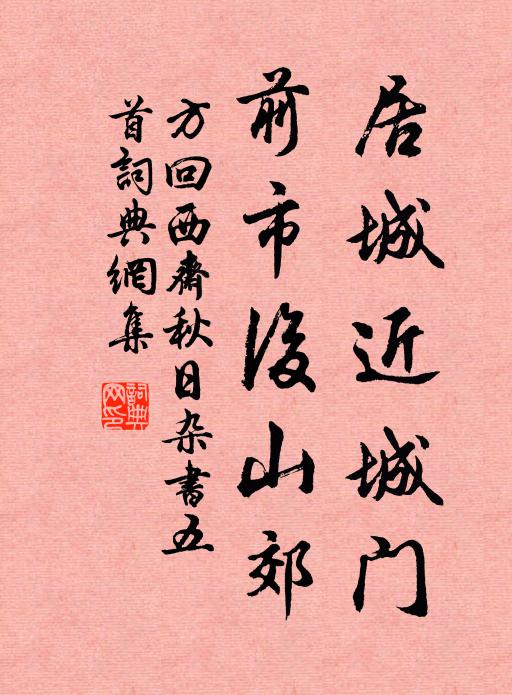 居城近城门
前市后山郊
方回西斋秋日杂書五
首詞典網集
詞典网印